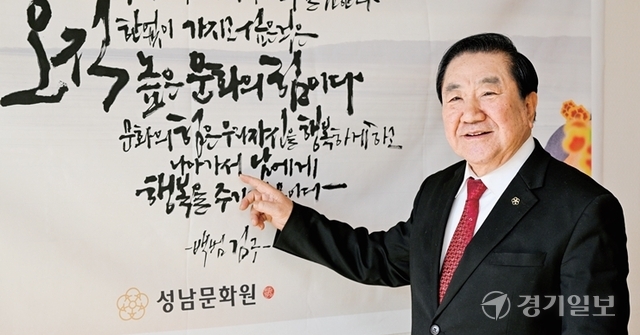 오직
한없이 가지고 싶은 것은
높은 문화의 힘이다
문화의 힘은 우리 자신을 행복하게 하고
나아가서 남에게
행복을 주기 때문이다
-백범 김구-
성남문화원
경기일보